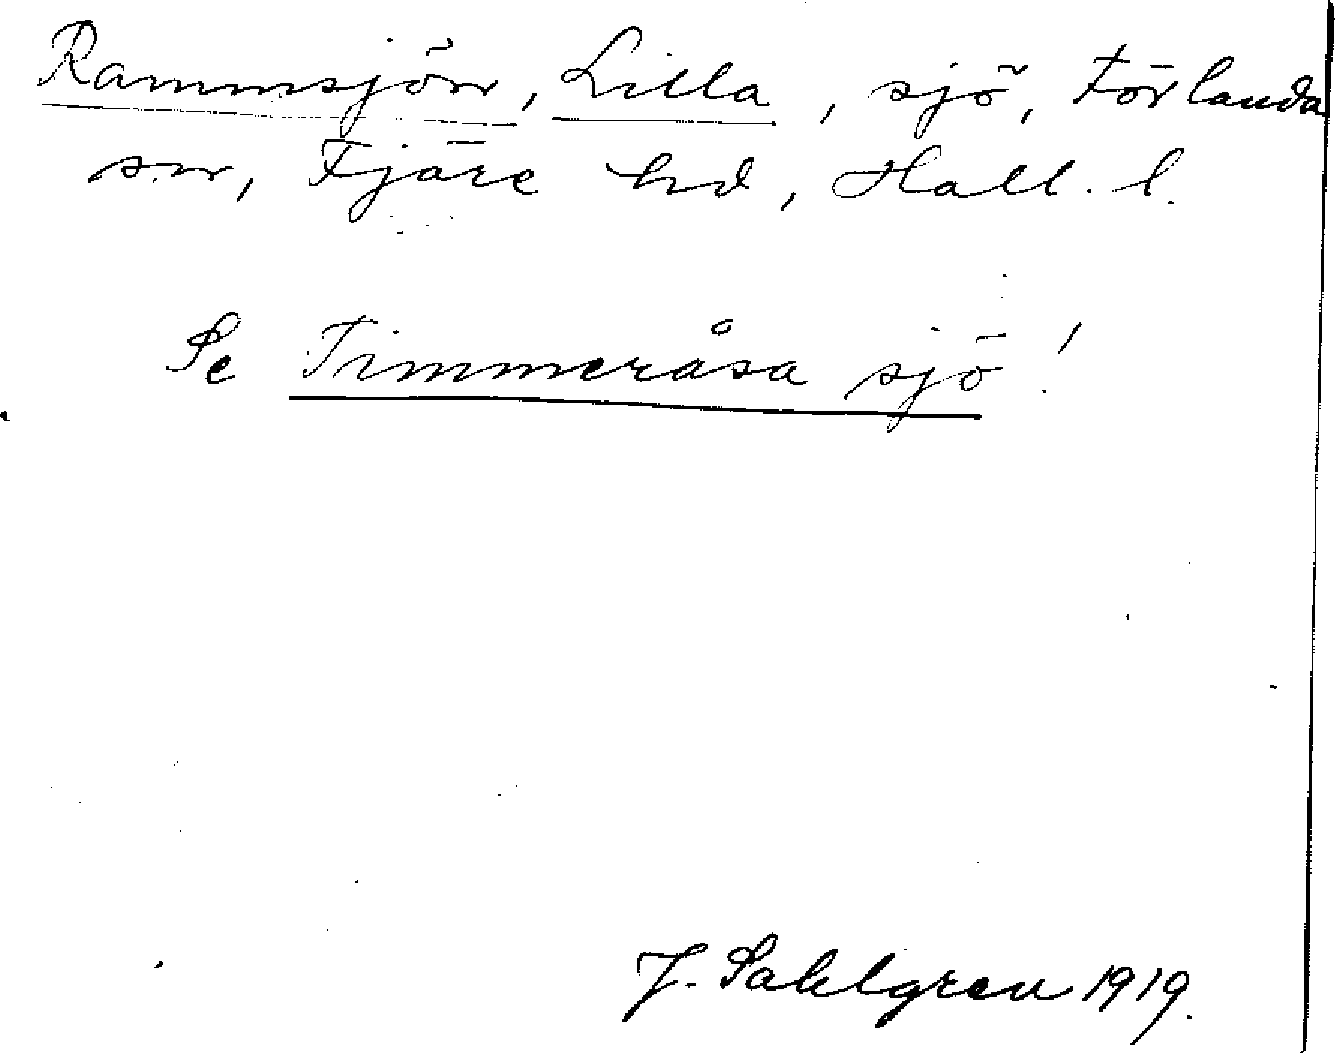 Rammsjön, Lilla, sjö, Förlanda
sn, Fjäre hd, Hall. l.
Se Timmeråsa sjö!
J. Sahlgren 1919.